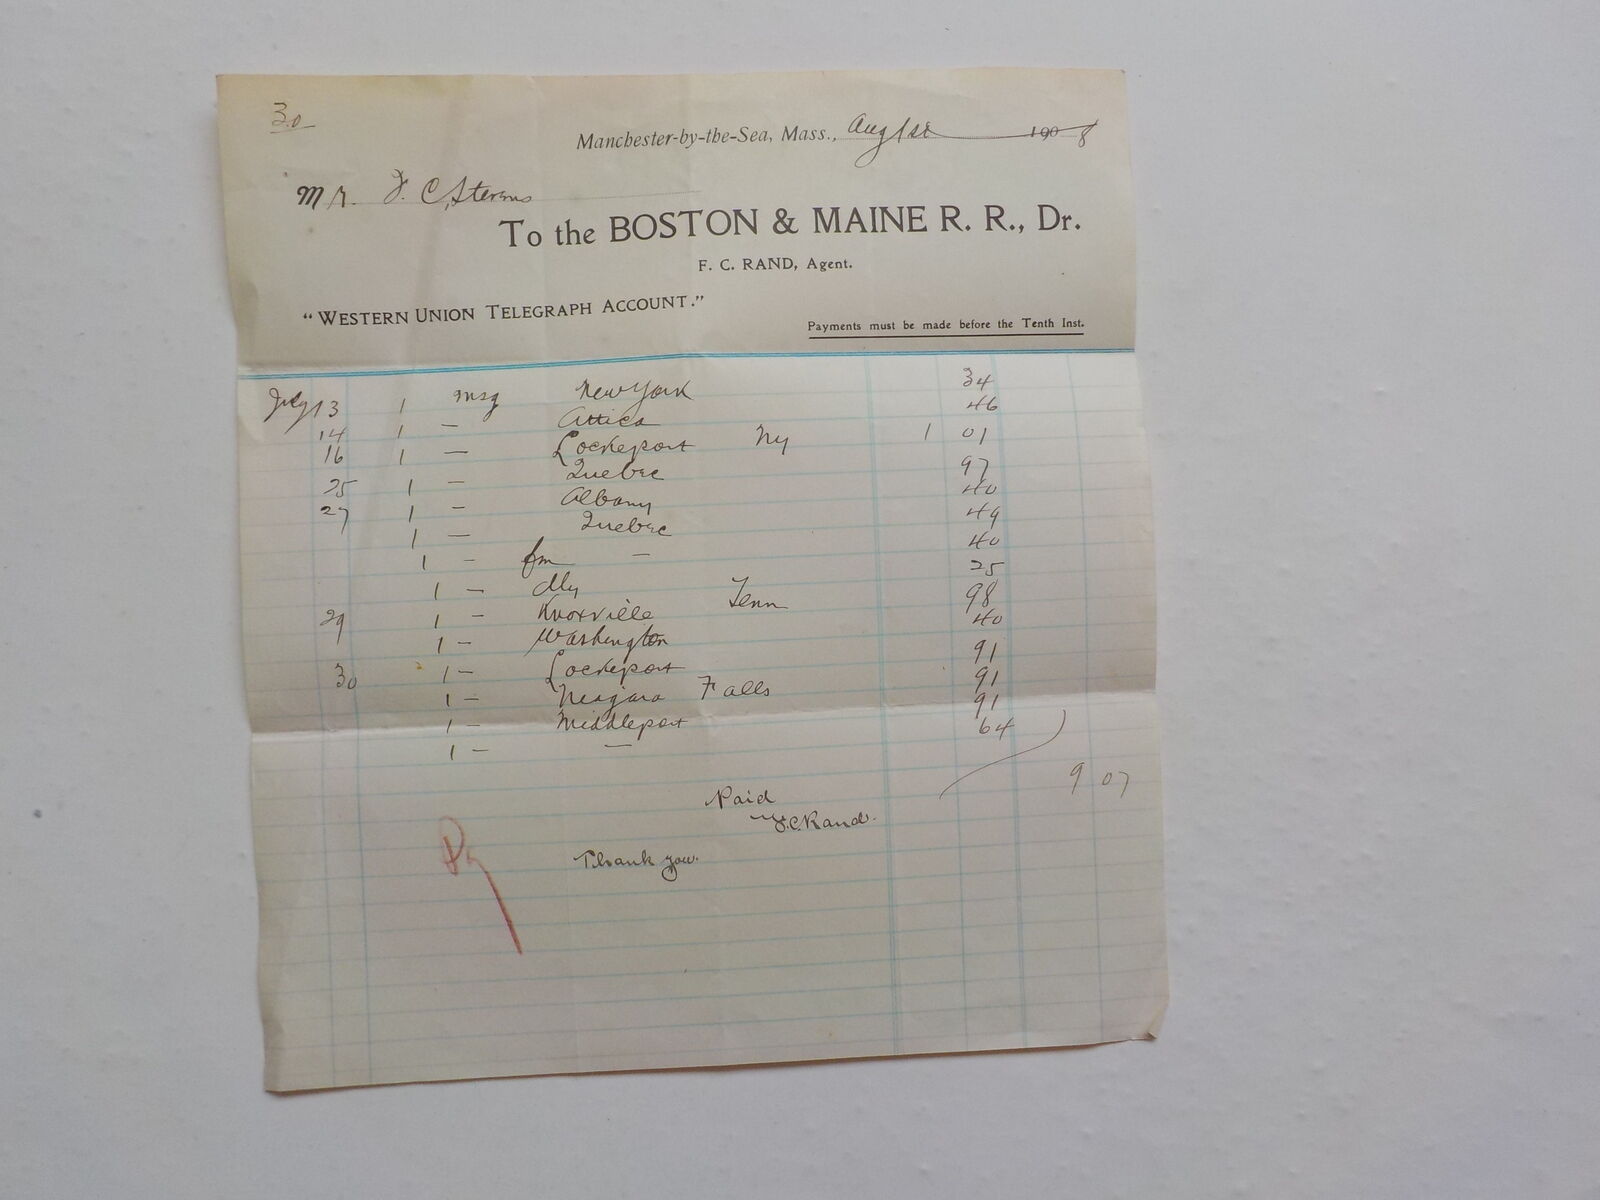 30
Manchester-by-the-Sea, Mass., Aug 1st 1908
Mr. F. C. Stevens
To the BOSTON & MAINE R. R., Dr.
F. C. RAND, Agent.
"WESTERN UNION TELEGRAPH ACCOUNT."
Payments must be made before the Tenth Inst.
July 13 1 msg New York 34
14 1 — Attica 46
16 1 — Lockeport Ny 1 01
25 1 — Quebec 97
27 1 — Albany 40
1 — Quebec 49
1 — fm — 40
1 — Dly 25
29 1 — Knoxville Tenn 98
1 — Washington 40
30 1 — Lockeport 91
1 — Niagara Falls 91
1 — Middleport 91
1 — — 64
9 07
Paid
F.C. Rand.
Thank you.